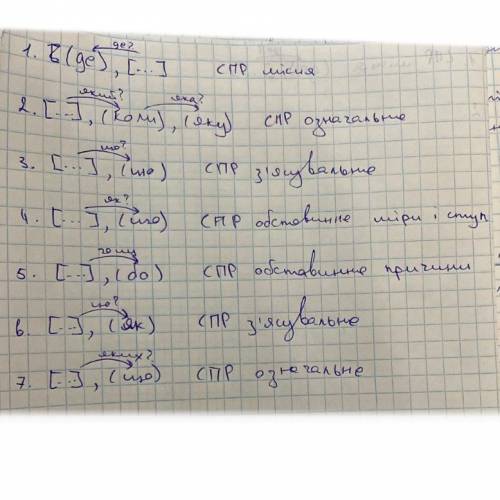 де?
1. (де), [...] СПР місця
який? яка?
2. [...], (коли), (яку) СПР означальне
що?
3. [...], (що) СПР з'ясувальне
як?
4. [...], (що) СПР обставинне міри і ступ
чому
5. [...], (бо) СПР обставинне причини
що?
6. [...], (як) СПР з'ясувальне
яких?
7. [...], (що) СПР означальне